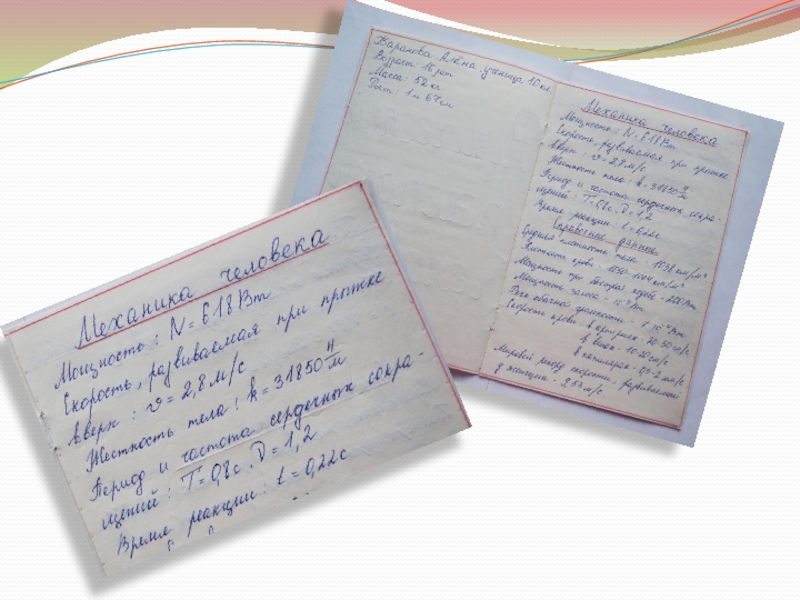 Баранова Алёна ученица 10 кл.
Возраст: 16 лет
Масса: 52 кг
Рост: 1 м 67 см
Механика человека
Мощность: N = 618 Вт
Скорость, развиваемая при прыжке
вверх: υ = 2,8 м/с
Жесткость тела: k = 31850 Н/м
Период и частота сердечных сокра-
щений: T = 0,8 с, ν = 1,2
Время реакции: t = 0,22 с
Справочные данные
Средняя плотность тела - 1036 кг/м³
Плотность крови - 1050-1064 кг/м³
Мощность при быстрой ходьбе - 200 Вт
Мощность голоса -
При обычной громкости -
Скорость крови: в артериях - 20-50 см/с
в венах - 10-20 см/с
в капиллярах - 0,5-2 мм/с
Мировой рекорд скорости, развиваемой
у женщин -
Механика человека
Мощность: N = 618 Вт
Скорость, развиваемая при прыжке
вверх: υ = 2,8 м/с
Жесткость тела: k = 31850 Н/м
Период и частота сердечных сокра-
щений: T = 0,8 с, ν = 1,2
Время реакции: t = 0,22 с